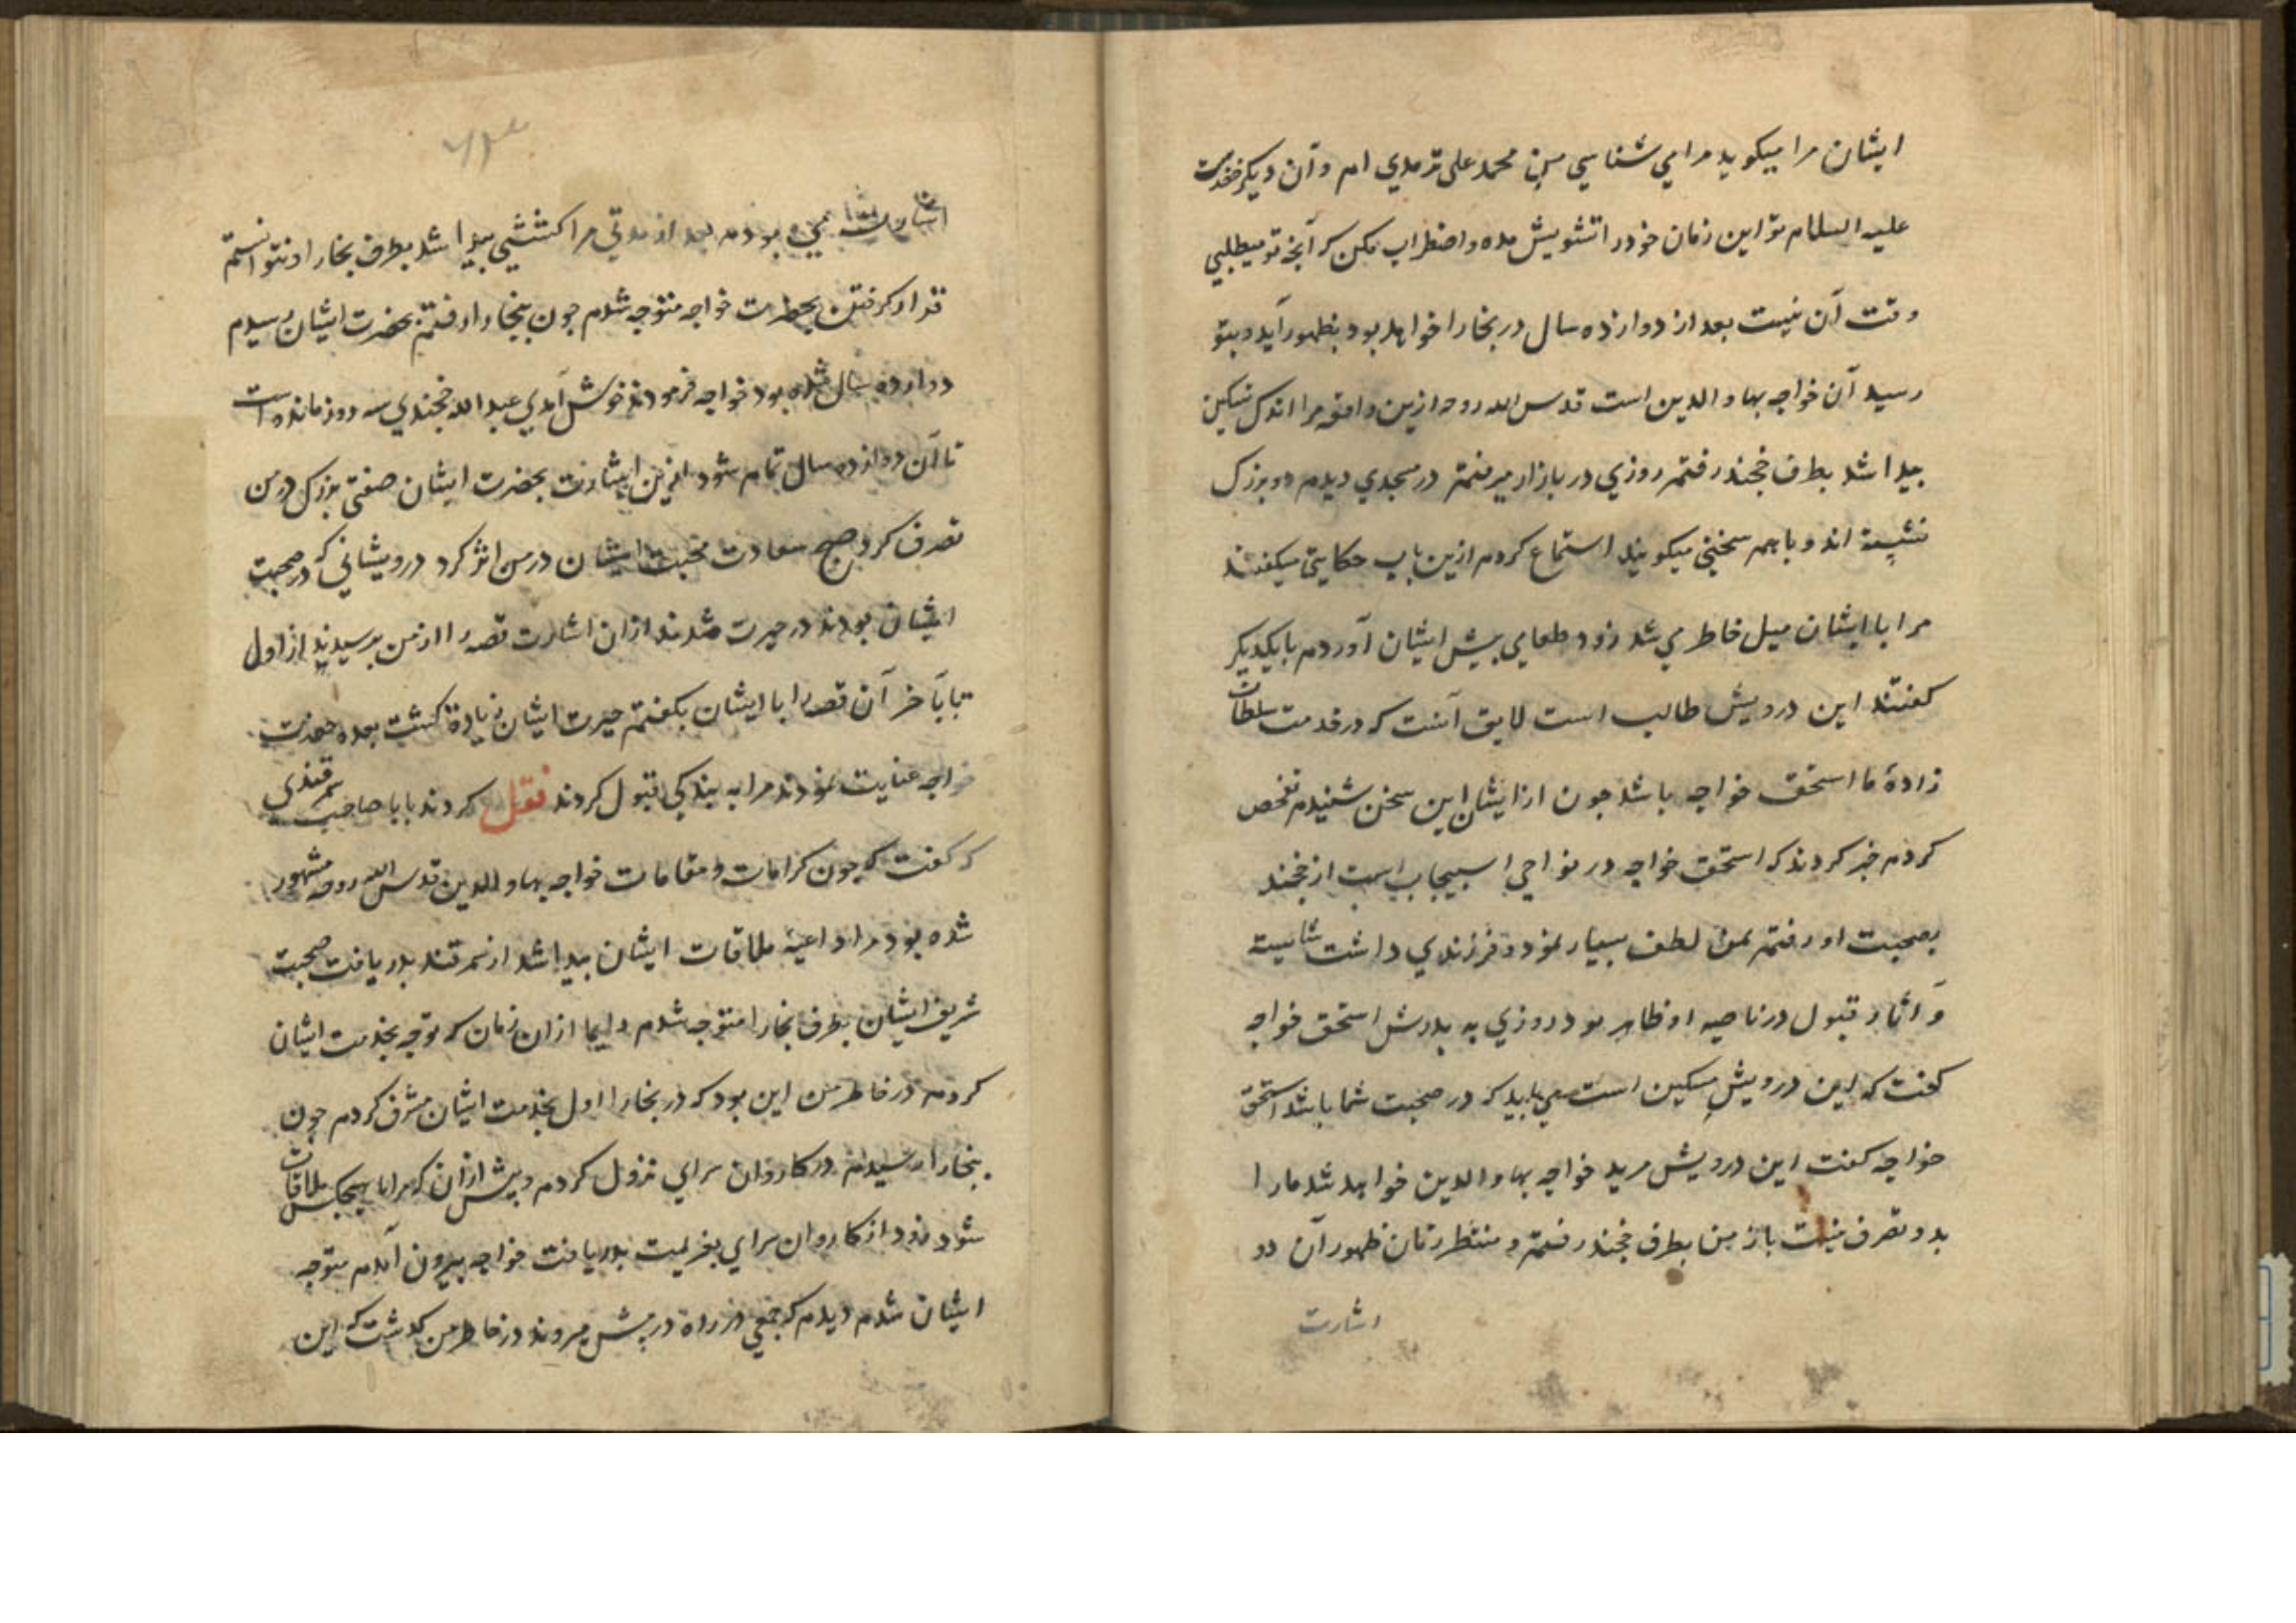 ایشان مرا میکوید مرا می شناسی من محمد علی ترمدی ام و آن دیکر خضرست
علیه السلام تو این زمان خود را تشویش مده و اضطراب مکن که آنجه تو میطلبی
وقت آن نیست بعد از دوازده سال در بخارا خواهد بود بظهور آید و بتو
رسید آن خواجه بهاو الدین است قدس الله روحه ازین واقعه مرا اندک تسکین
بیدا شد بطرف خجند رفتم روزی در بازار میرفتم در مسجدی دیدم دو بزرک
نشسته اند و با هم سخنی میکویند استماع کردم ازین باب حکایتی میکفتند
مرا با ایشان میل خاطر می شد زود طعامی بیش ایشان آوردم با یکدیکر
کفتند این درویش طالب است لایق آنست که در خدمت سلطان
زادهٔ ما اسحق خواجه باشد جون از ایشان این سخن شنیدم تفحص
کردم خبر کردند که اسحق خواجه در نواحی اسبیجاب است از خجند
بصحبت او رفتم بمن لطف بسیار نمود و فرزندی داشت شایسته
و آثار قبول در ناصیه او ظاهر بود روزی به بدرش اسحق خواجه
کفت که این درویش مسکین است می باید که در صحبت شما باشد اسحق
خواجه کفت این درویش مرید خواجه بهاو الدین خواهد شد ما را
بدو تصرف نیست باز من بطرف خجند رفتم و منتظر زمان ظهور آن دو
اشارت
اشارت می بودم بعد از مدتی مرا کششی بیدا شد بطرف بخارا و نتوانستم
قرار کرفتن بحضرت خواجه متوجه شدم جون ببخارا رفتم بحضرت ایشان رسیدم
دوازده سال شده بود خواجه فرمودند خوش آمدی عبد الله خجندی سه روز مانده است
تا آن دوازده سال تمام شود ازین اشارت بحضرت ایشان صفتی بزرک در من
تصرف کرد صبح سعادت محبت ایشان در من اثر کرد درویشانی که در صحبت
ایشان بودند در حیرت شدند ازان اشارت قصه را از من برسیدند از اول
تا بآخر آن قصه را با ایشان بکفتم حیرت ایشان زیادة کشت بعده حضرت
خواجه عنایت نمودند مرا به بندکی قبول کردند نقل کردند بابا صاحب سمرقندی
که کفت که جون کرامات و مقامات خواجه بهاو الدین قدس الله روحه مشهور
شده بود مرا داعیهٔ ملاقات ایشان بیدا شد از سمرقند بدریافت صحبت
شریف ایشان بطرف بخارا متوجه شدم دایما ازان زمان که توجه بخدمت ایشان
کردم در خاطر من این بود که در بخارا اول بخدمت ایشان مشرف کردم جون
ببخارا رسیدم در کاروان سرای نزول کردم و بیش ازان که مرا با هیجکس ملاقات
شود زود از کاروان سرای بعزیمت بدریافت خواجه بیرون آمدم متوجه
ایشان شدم دیدم که جمعی در راه در بیش میروند در خاطر من کدشت که این